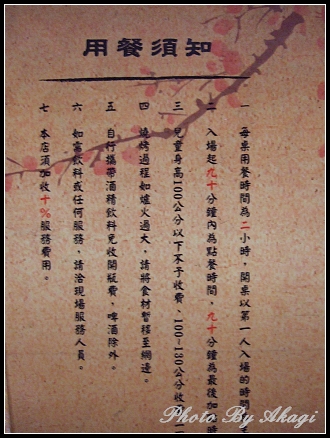 用餐須知
一 每桌用餐時間為二小時，開桌以第一人入場的時間
二 入場起九十分鐘內為點餐時間，九十分鐘為最後加
三 兒童身高100公分以下不予收費、100-130公分收
四 燒烤過程如爐火過大，請將食材暫移至網邊。
五 自行攜帶酒精飲料免收開瓶費，啤酒除外。
六 如需飲料或任何服務，請洽現場服務人員。
七 本店須加收十%服務費用。
Photo By Akagi